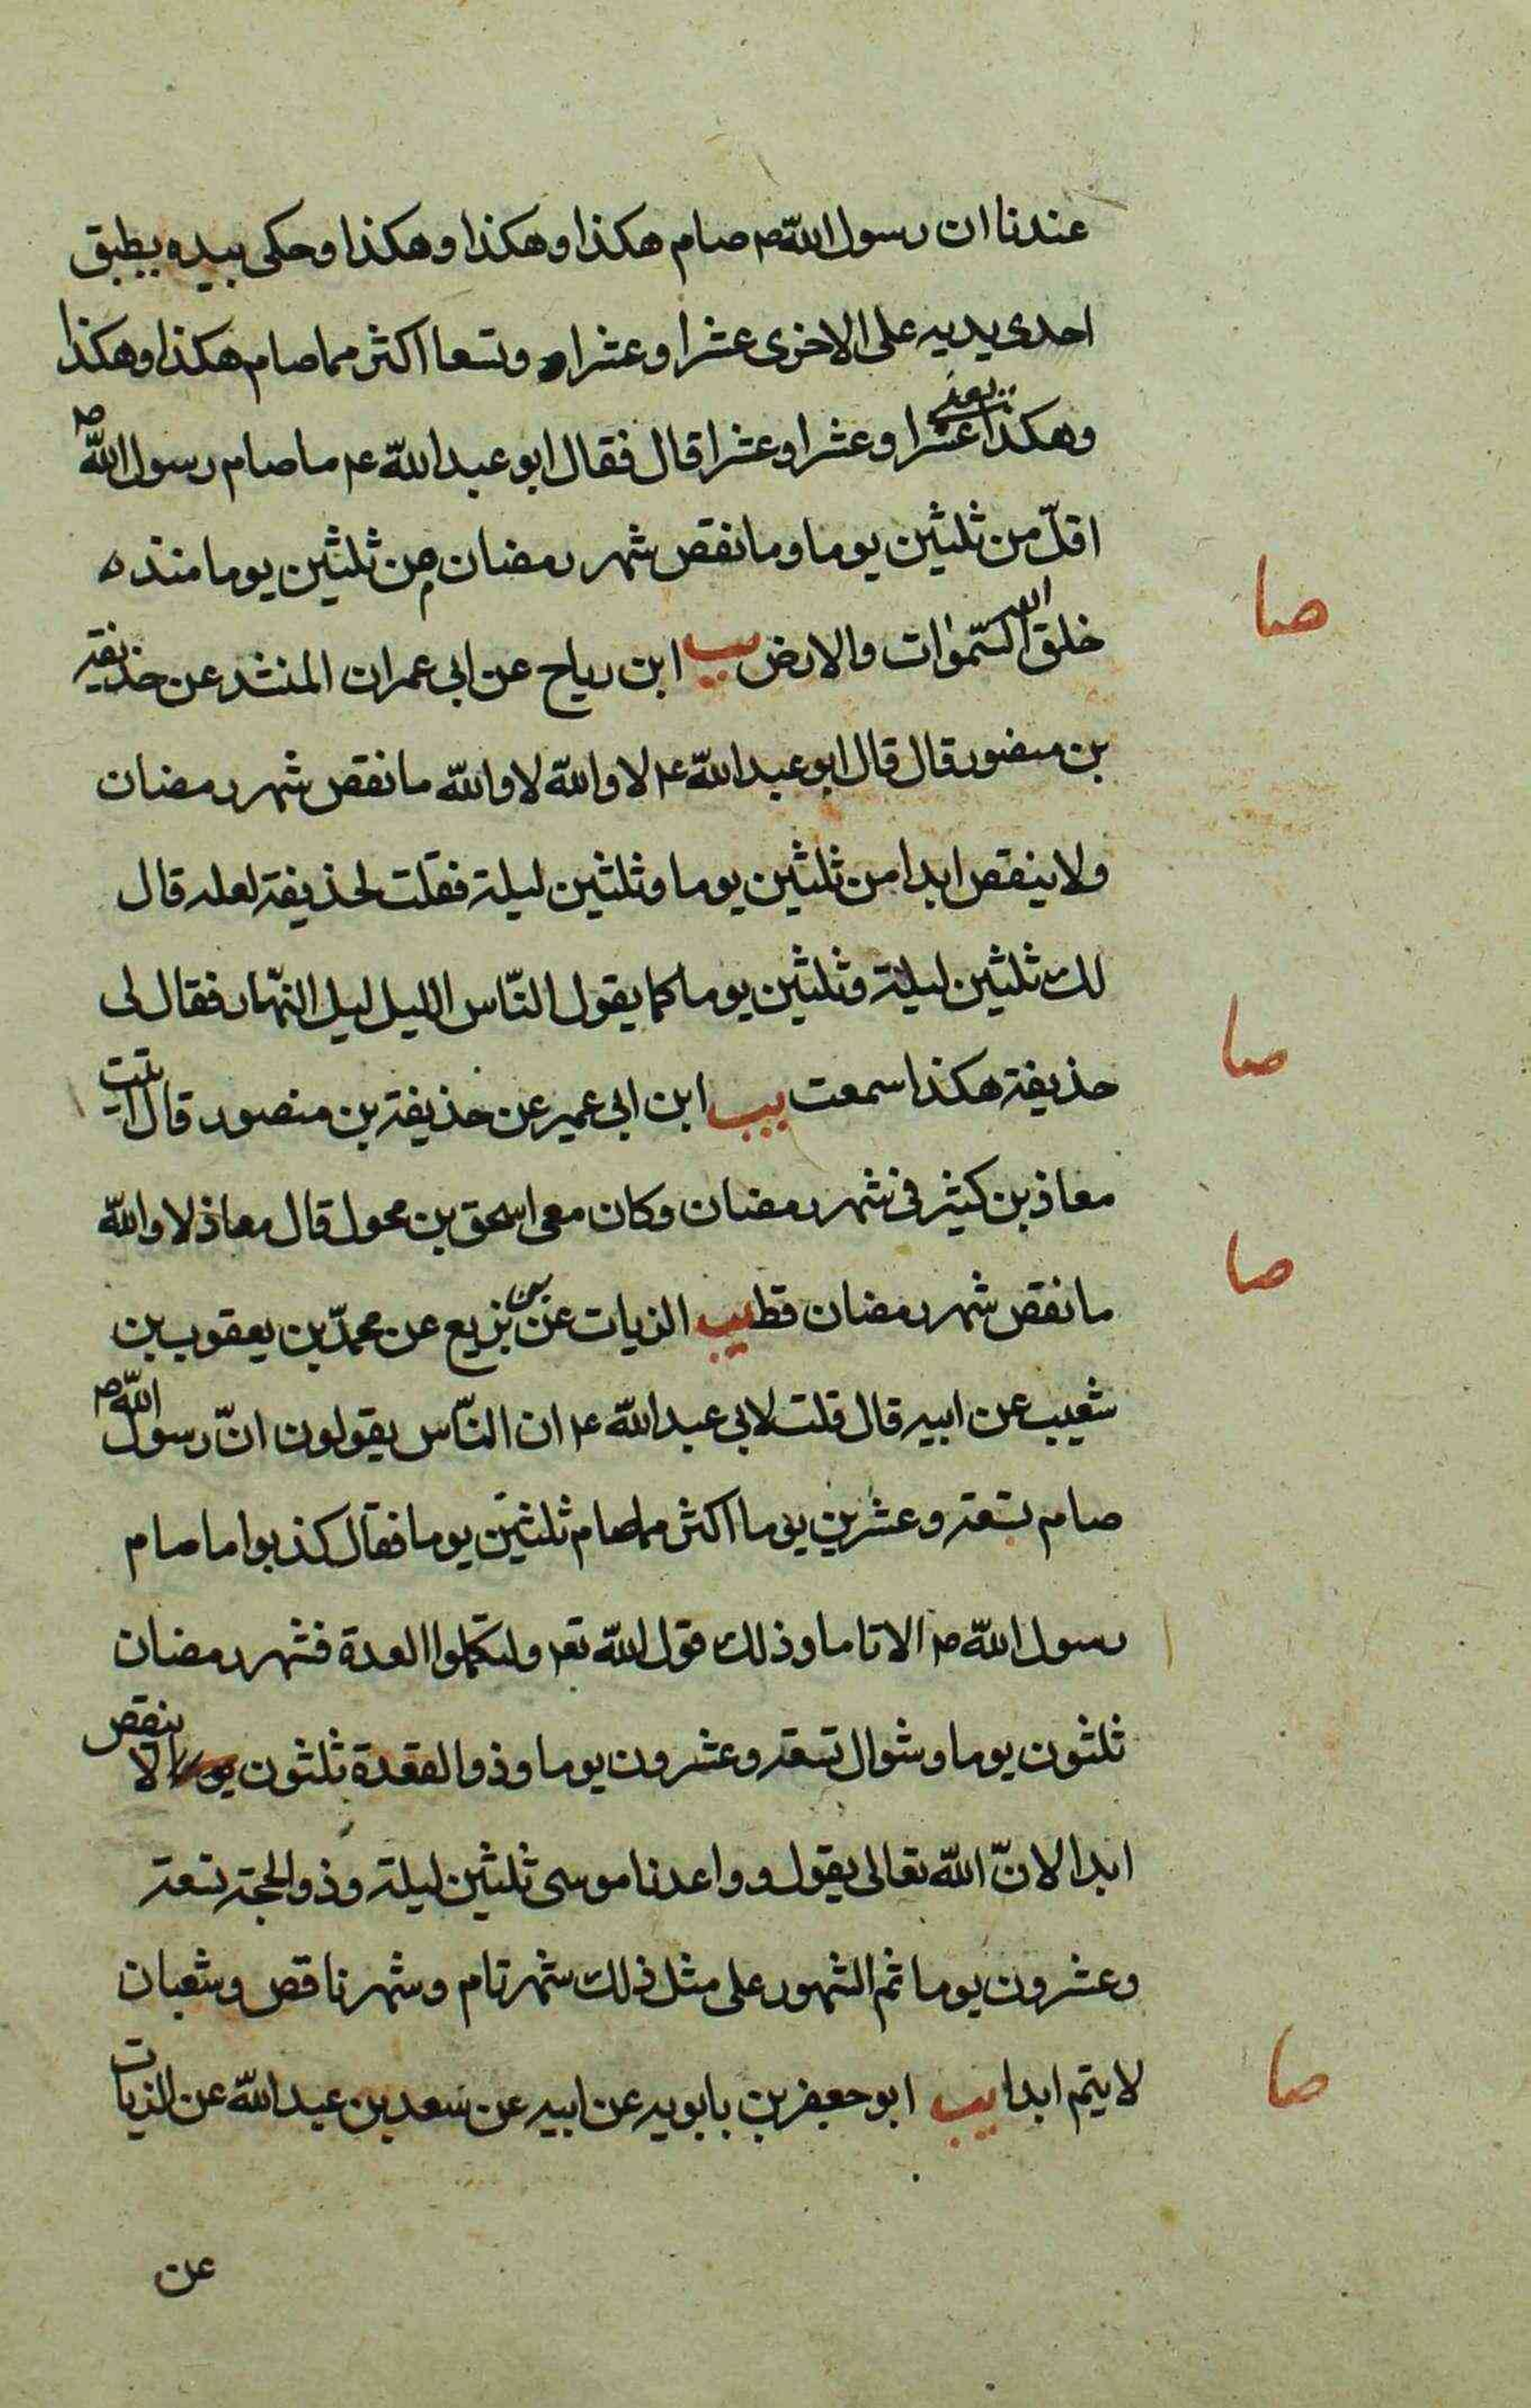 عندنا ان رسول الله ص صام هكذا وهكذا وهكذا وحكى بيده يطبق
احدى يديه على الاخرى عشرا وعشرا وتسعا اكثر مما صام هكذا وهكذا
وهكذا يعنى عشرا وعشرا وعشرا قال فقال ابو عبد الله ع ما صام رسول الله ص
اقلّ من ثلثين يوما وما نقص شهر رمضان من ثلثين يوما منذ
صا
خلق الله السّموات والارض يب ابن رياح عن ابى عمران المنشد عن حذيفة
بن منصور قال قال ابو عبد الله ع لا والله لا والله ما نقص شهر رمضان
ولا ينقص ابدا من ثلثين يوما وثلثين ليلة فقلت لحذيفة لعله قال
لك ثلثين ليلة وثلثين يوما كما يقول النّاس الليل ليل النّهار فقال لى
صا
حذيفة هكذا سمعت يب ابن ابى عمير عن حذيفة بن منصور قال اتيت
معاذ بن كثير فى شهر رمضان وكان معى اسحق بن محول قال معاذ لا والله
صا
ما نقص شهر رمضان قط يب الزيات عن بن بزيع عن محمدّ بن يعقوب بن
شعيب عن ابيه قال قلت لابى عبد الله ع ان النّاس يقولون انّ رسول الله ص
صام تسعة وعشرين يوما اكثر مما صام ثلثين يوما فقال كذبوا ما صام
رسول الله ص الا تاما وذلك قول الله تعه ولتكملوا العدة فشهر رمضان
ثلثون يوما وشوال تسعة وعشرون يوما وذو القعدة ثلثون يوما لا ينقص
ابدا لانّ الله تعالى يقول وواعدنا موسى ثلثين ليلة وذو الحجة تسعة
وعشرون يوما ثم الشهور على مثل ذلك شهر تام وشهر ناقص وشعبان
صا
لا يتم ابدا يب ابو جعفر بن بابويه عن ابيه عن سعد بن عبد الله عن الزيات
عن